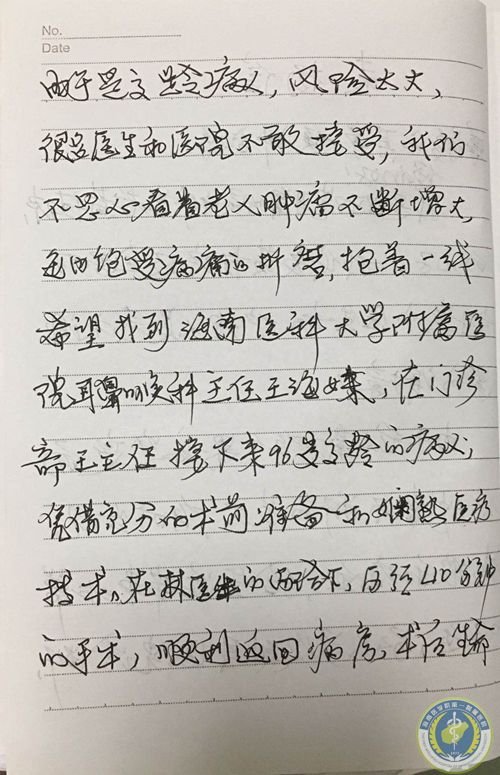 No.
Date
由于是高龄病人，风险太大，
很多医生和医院不敢接受，我们
不忍心看着老人肿瘤不断增大，
饱受病痛的折磨，抱着一线
希望找到海南医科大学附属医
院耳鼻喉科主任王海，在门诊
部王主任接下来96岁高龄的病人，
凭借充分的术前准备和娴熟医疗
技术，在林医生的配合下，历经40分钟
的手术，顺利返回病房，术后生命
海南医学院第一附属医院